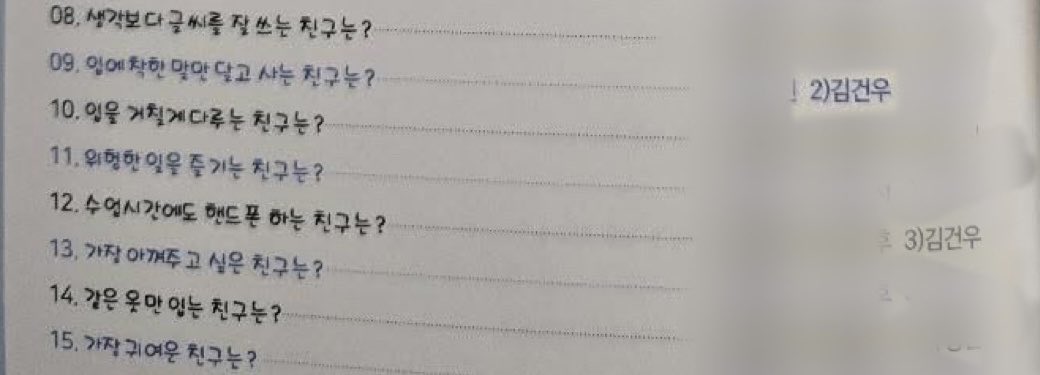 08. 생각보다 글씨를 잘 쓰는 친구는?
09. 입에 착한 말만 달고 사는 친구는? 2)김건우
10. 입을 거칠게 다루는 친구는?
11. 위험한 일을 즐기는 친구는?
12. 수업시간에도 핸드폰 하는 친구는? 3)김건우
13. 가장 아껴주고 싶은 친구는?
14. 같은 옷만 입는 친구는?
15. 가장 귀여운 친구는?